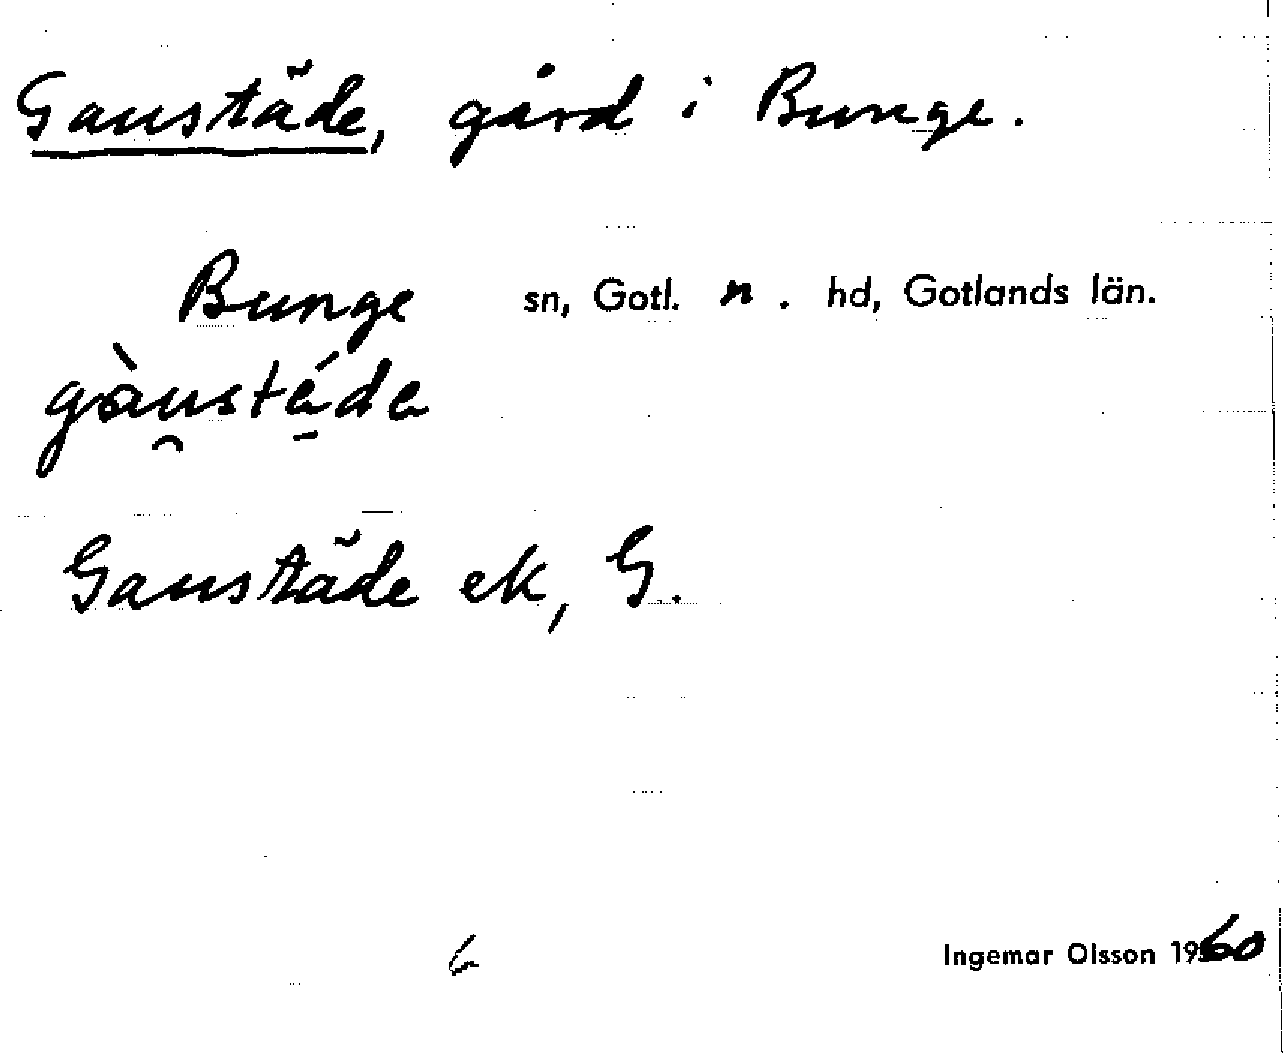 Gaustäde, gård i Bunge.
Bunge sn, Gotl. n. hd, Gotlands län.
gàu̯stá̱da
Gaustäde ek, G.
Ingemar Olsson 1960